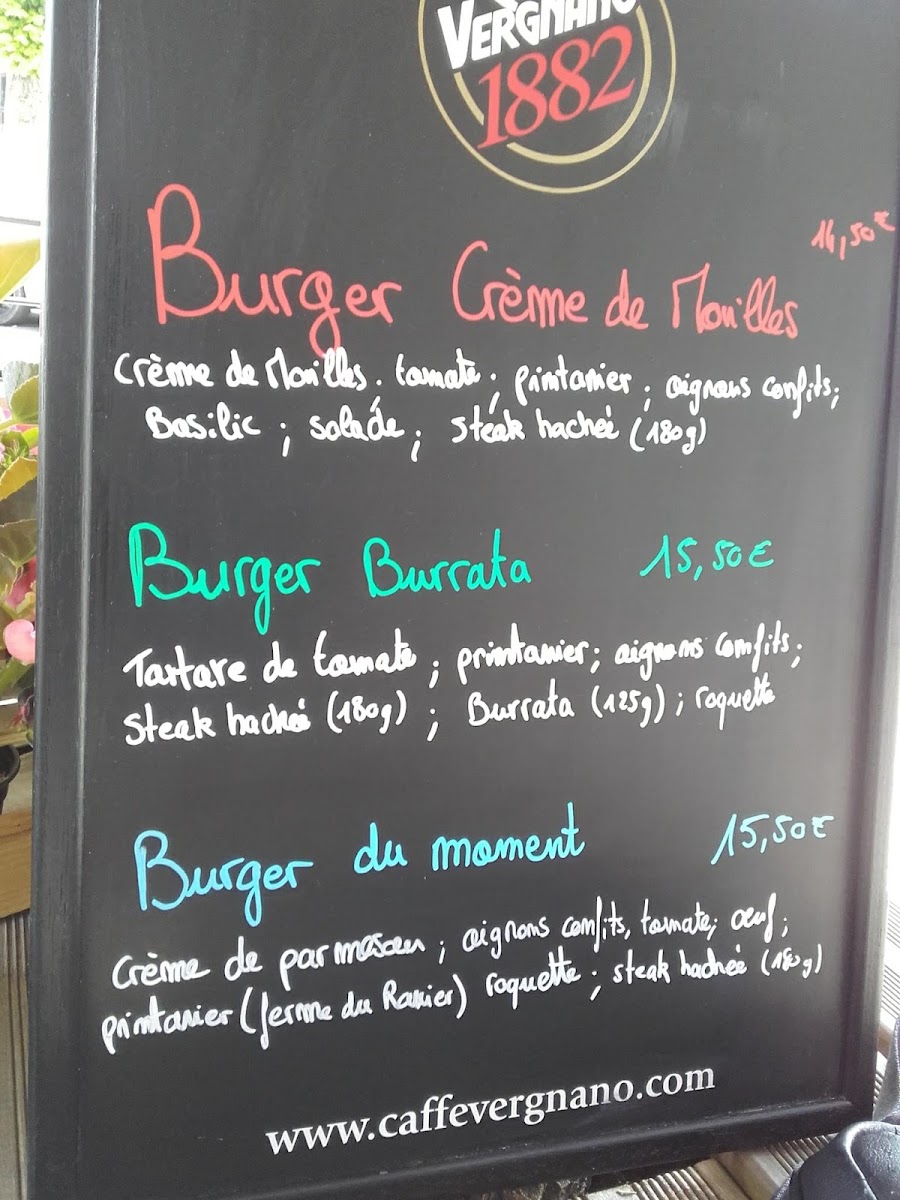 VERGNANO
1882
14,50€
Burger Crème de Morilles
Crème de Morilles. tomate; printanier; oignons confits;
Basilic; salade; steak haché (180g)
Burger Burrata 15,50€
Tartare de tomate; printanier; oignons confits;
steak haché (180g); Burrata (125g); roquette
Burger du moment 15,50€
Crème de parmesan; oignons confits, tomate; œuf;
printanier (ferme du Ramier) roquette; steak haché (180g)
www.caffevergnano.com